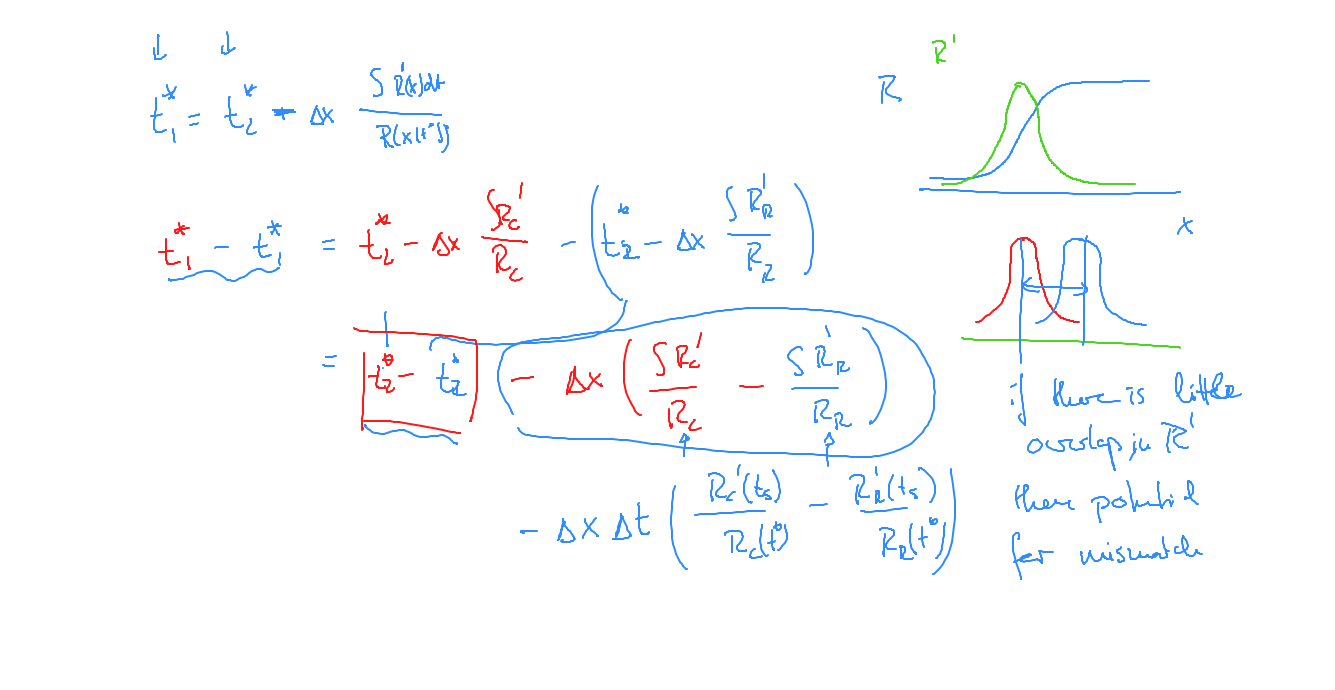 R'
R
t₁* = t₂* - Δx ∫R'(x)dt / R(x(t*))
x
t₁* - t₁* = t₂* - Δx ∫R_c' / R_c - (t₂* - Δx ∫R_R' / R_R)
= t₂* - t₂* - Δx (∫R_c' / R_c - ∫R_R' / R_R)
- Δx Δt (R_c'(t_s) / R_c(t*) - R_R'(t_s) / R_R(t*))
if there is little
overlap in R'
there potential
for mismatch